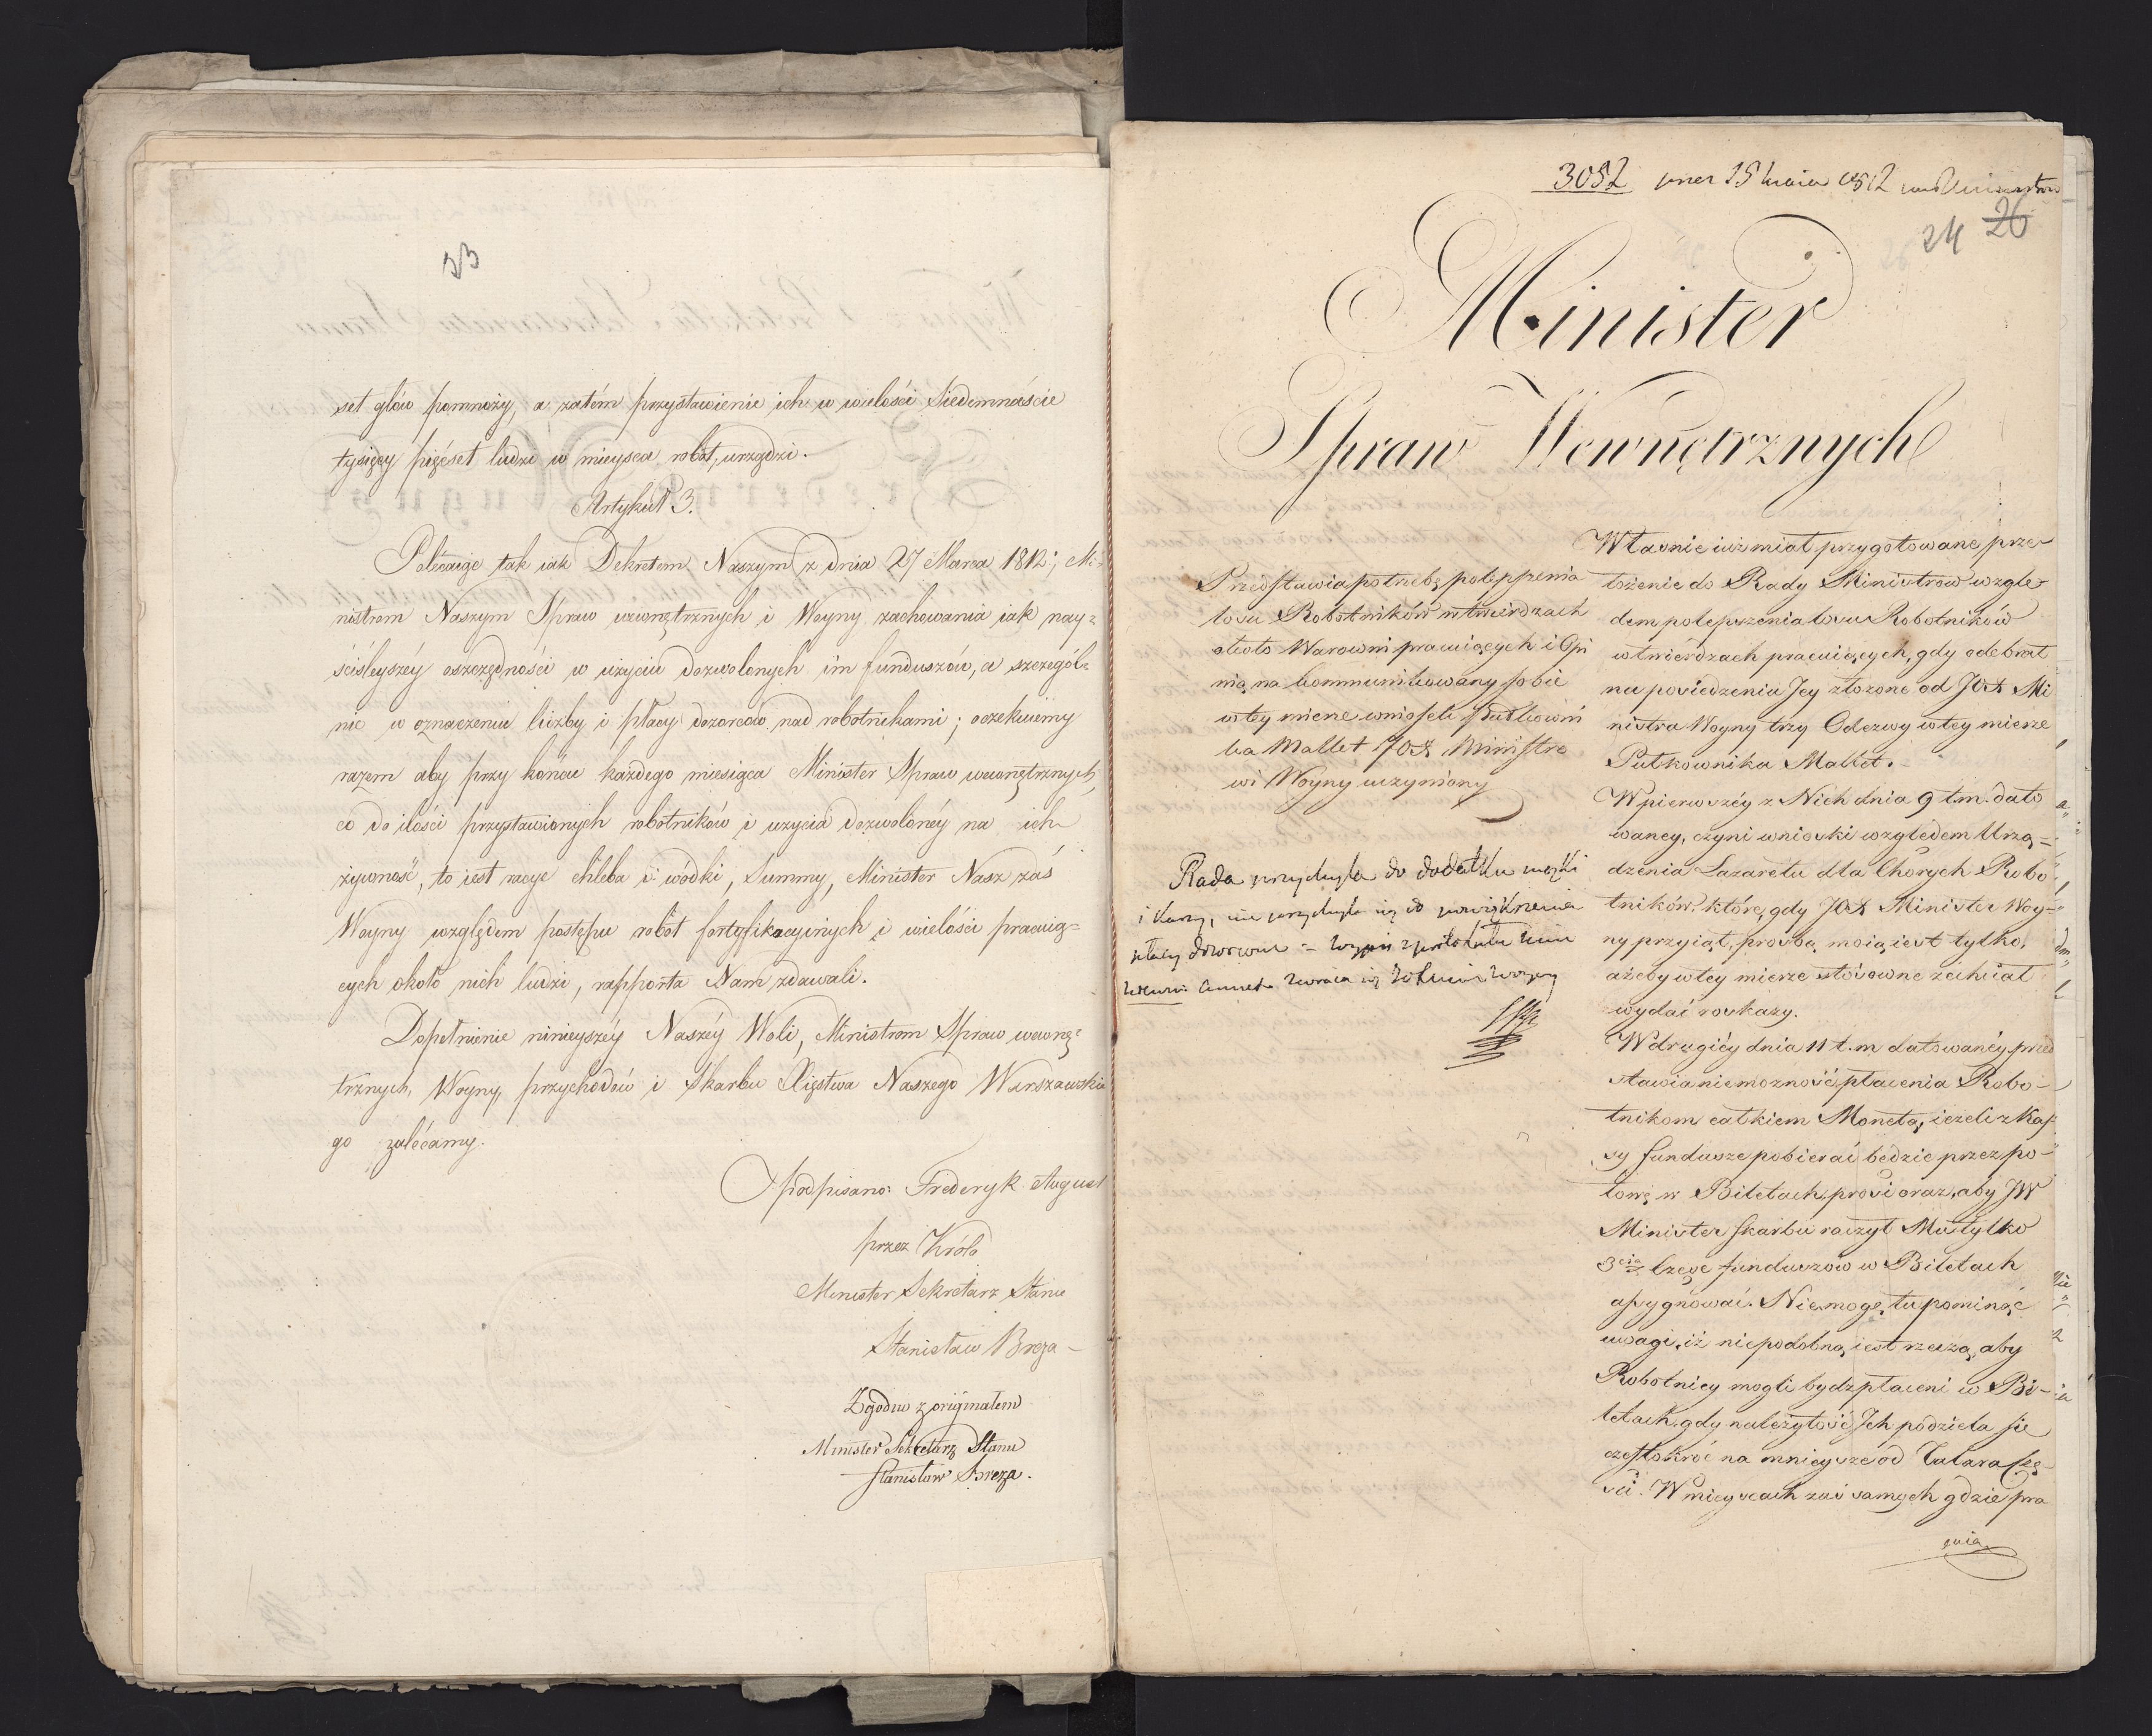 23
set głów pomnoży, a zatém przystawienie ich w wielości Siedemnaście
tysięcy pięćset ludzi w mieysca robót, urządzi.
Artykuł 3.
Polecaiąc tak iak Dekretem Naszym z dnia 27 Marca 1812; Mi-
nistrom Naszym Spraw wewnętrznych i Woyny zachowania iak nay-
ściśleyszéy oszczędności w użyciu dozwolonych im funduszów, a szczegól-
nie w oznaczeniu liczby i płacy dozorców nad robotnikami; oczekuiemy
razem aby przy końcu każdego miesiąca Minister Spraw wewnętrznych,
co do ilości przystawionych robotników i użycia dozwolonéy na ich
żywność, to iest racye chleba i wódki, Summy, Minister Nasz zaś
Woyny względem postępu robót fortyfikacyinych i wielości pracuią=
cych około nich ludzi, rapporta Nam zdawali.
Dopełnienie ninieyszéy Naszéy Woli, Ministrom Spraw wewnę-
trznych, Woyny, przychodów i Skarbu Xięstwa Naszego Warszawskie
go zalecamy.
podpisano: Frederyk August
przez Króla
Minister Sekretarz Stanu
Stanisław Breza
Zgodno z originałem
Minister Sekretarz Stanu
Stanisław Breza.
3052 15 maia 1812
24 26
Minister
Spraw Wewnętrznych
Przedstawia potrzebę polepszenia
losu Robotników w twierdzach
około Warowni pracuiących i Opi
nią na kommunikowany sobie
w tey mierze wniosek Pułkowni
ka Mallet JOX Ministro
wi Woyny uczyniony
Rada przychyla do dodatku
i kaszy, nie przychyla się do powiększenia
płacy dozorcom = wypis z protokułu
zwraca się Woyny
Właśnie iuż miał przygotowane prze-
łożenie do Rady Ministrów wzglę-
dem polepszenia losu Robotników
w twierdzach pracuiących, gdy odebrał
na posiedzeniu Jey złożone od JOX Mi
nistra Woyny trzy Odezwy w tey mierze
Pułkownika Mallet.
W pierwszéy z Nich dnia 9 t.m. dato
waney, czyni wnioski względem Urzą=
dzenia Lazaretu dla Chorych Robo
tników, które, gdy JOX Minister Woy=
ny przyiął, prośbą moią iest tylko,
ażeby w tey mierze stósowne zechciał
wydać rozkazy.
W drugiéy dnia 11 t.m datowanéy przed
stawia niemożność płacenia Robo-
tnikom całkiem Monetą, ieżeli z Kas
sy fundusze pobierać będzie przez po-
łowę w Biletach, prosi oraz, aby JW
Minister Skarbu raczył Mu tylko
3cią Częśc funduszów w Biletach
assygnować. Nie mogę tu pominąć
uwagi, iż niepodobną iest rzeczą, aby
Robotnicy mogli bydź płaceni w Bi-
letach, gdy należytość Ich podziela się
częstokroć na mnieysze od Talara Czę-
ści. W mieyscach zaś samych gdzie pra
cuią